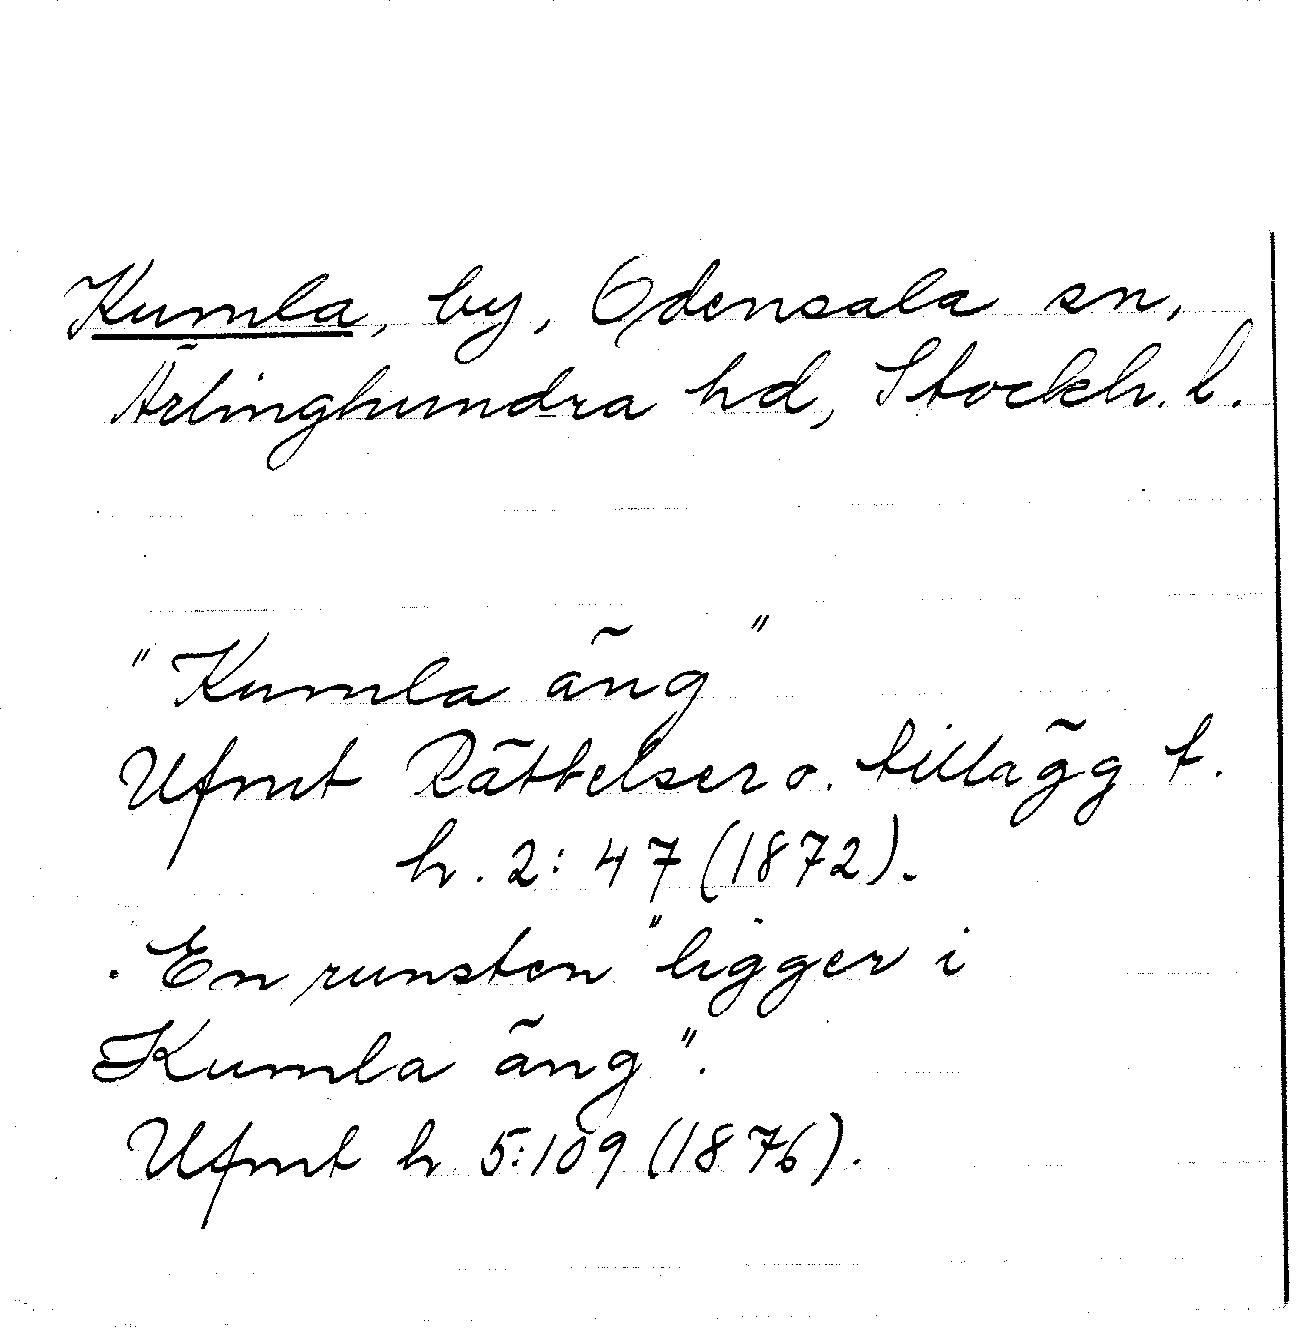 Kumla, by, Odensala sn,
Ärlinghundra hd, Stockh. l.
"Kumla äng"
Ufmt Rättelser o. tillägg t.
h. 2:47 (1872).
. En runsten "ligger i
Kumla äng".
Ufmt h 5:109 (1876).